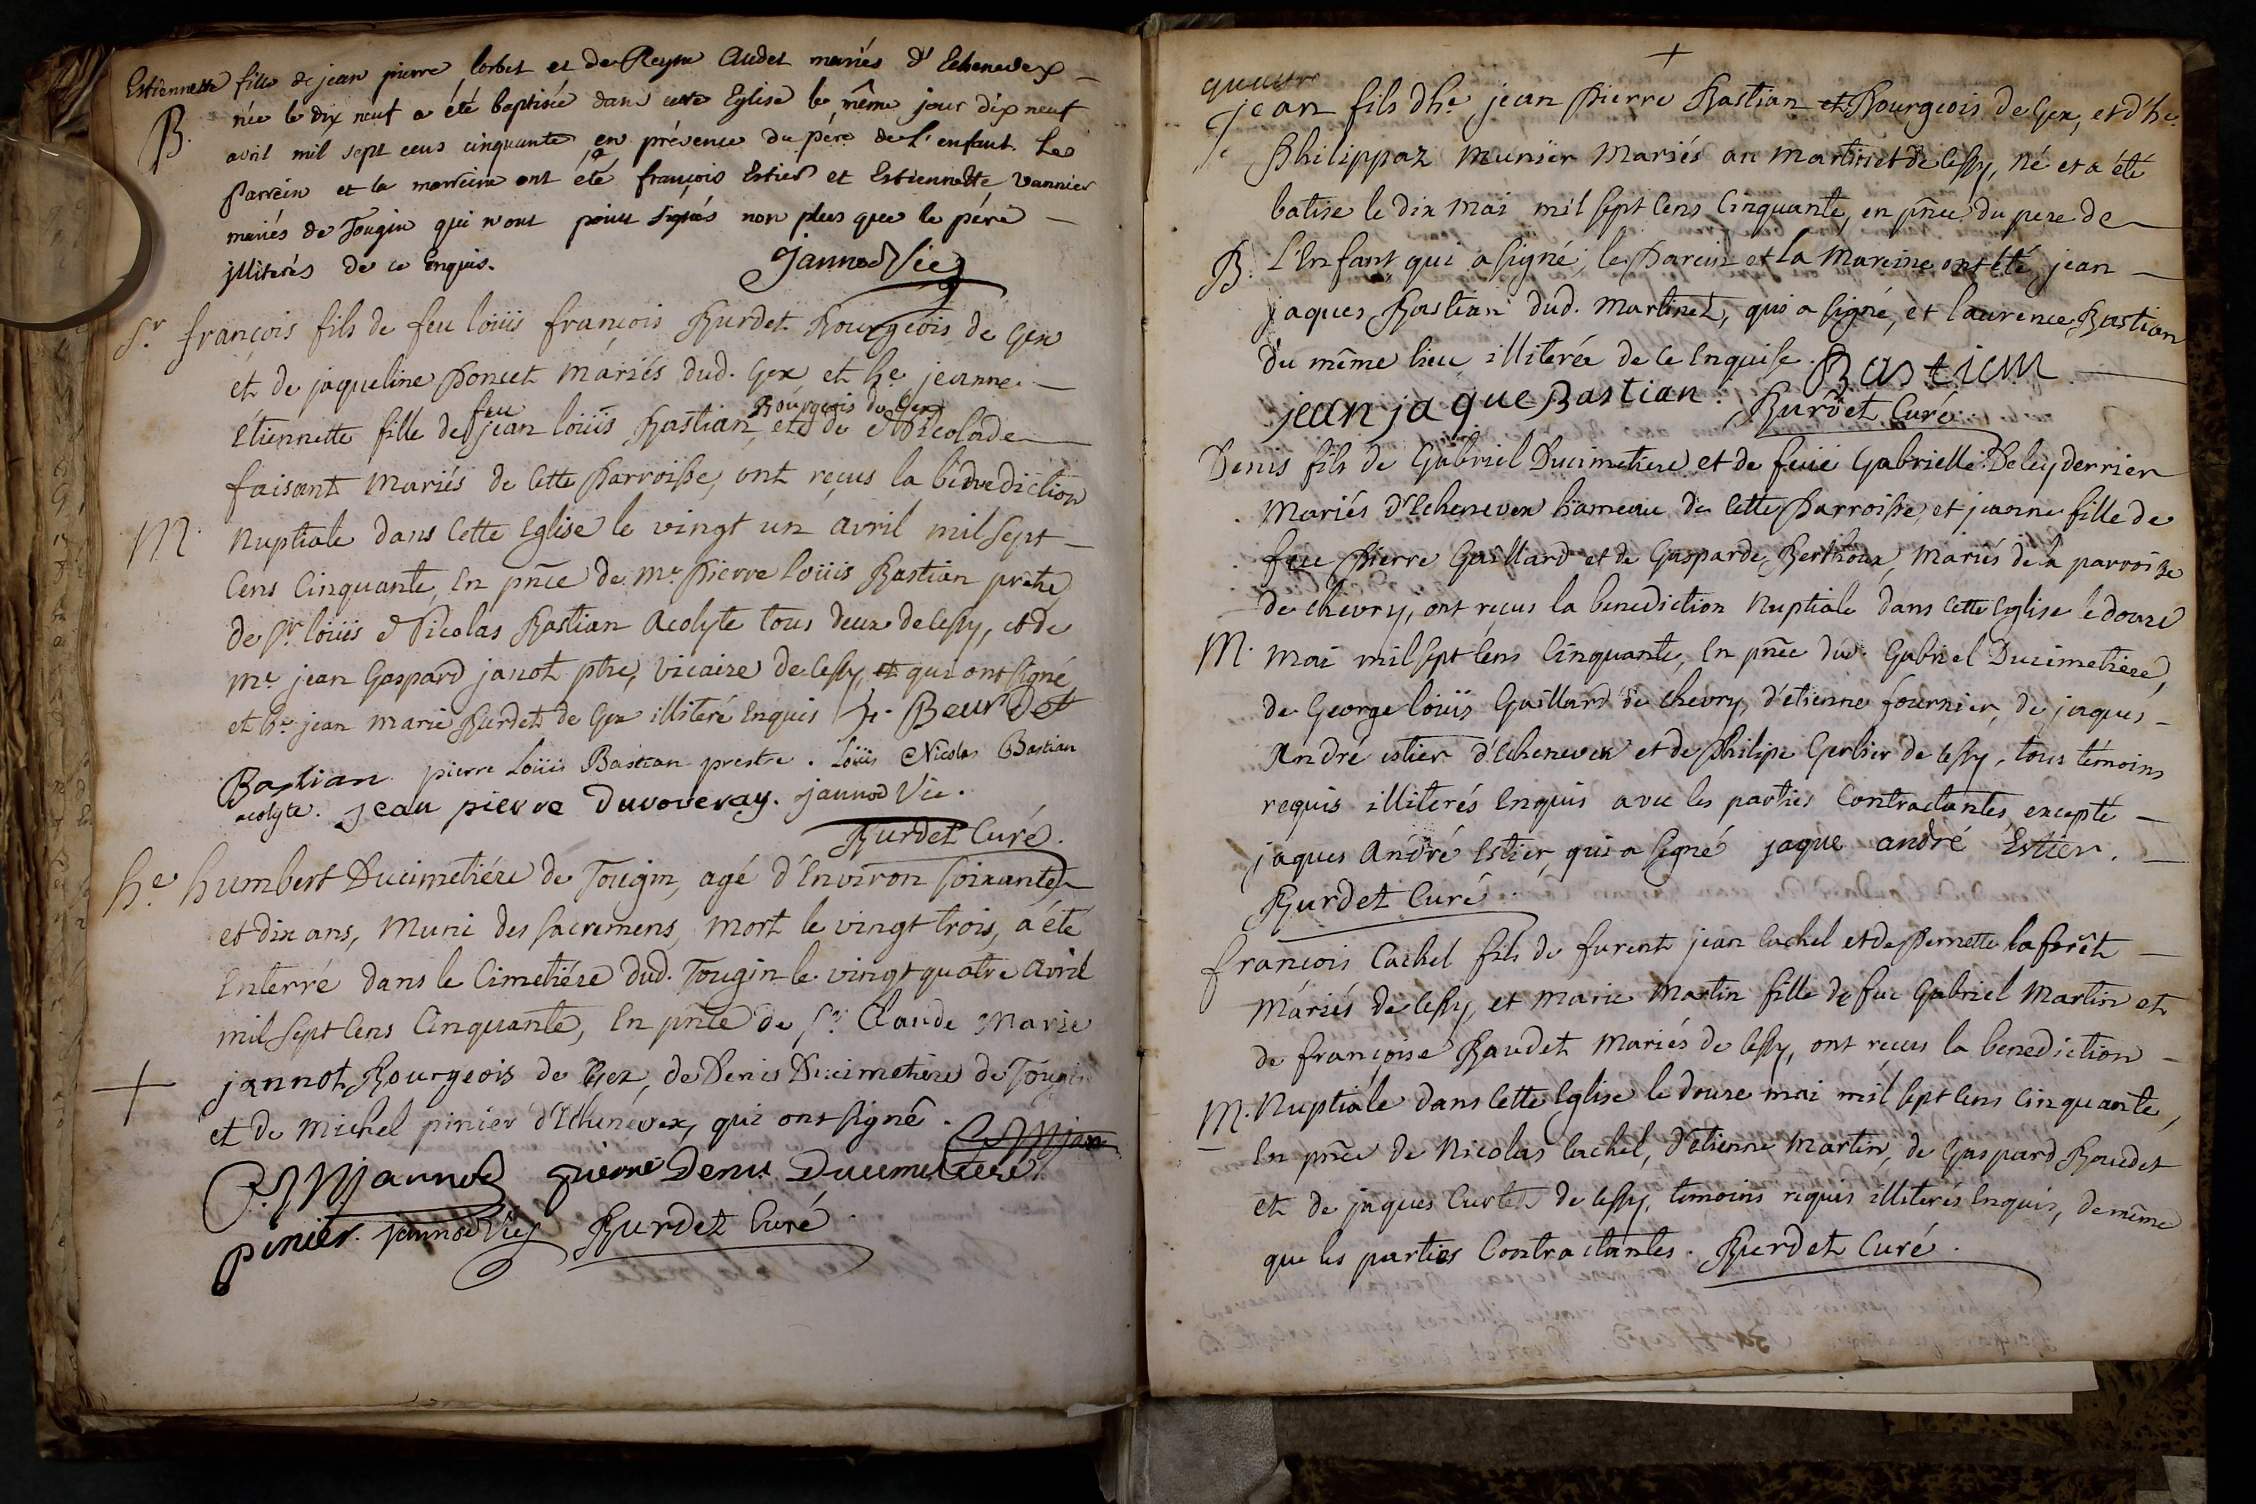 Estiennette fille de jean pierre Corbet et de Reyne Audet mariés d'Echenevex
B. née le dix neuf a été baptisée dans cette Eglise le même jour dix neuf
avril mil sept cens cinquante en présence du père de l'enfant. Les
Parrein et la marreine ont été françois Estier et Estiennette Vannier
mariés de Tougin qui n'ont point signés non plus que le pére
jlliterés de ce Enquis.
jannod Vic
Sr. françois fils de feu loüis françois Burdet Bourgeois de Gex
et de jaqueline Poncet mariés dud. Gex, et he. jeanne
Etiennette fille de feu jean loüis Bastian Bourgeois de Gex, et de Nicolade
faisant mariés de Cette Parroisse, ont reçus la bénediction
M. Nuptiale dans Cette Eglise le vingt un avril mil sept
Cens Cinquante, En pnce de Me. Pierre loüis Bastian prêtre,
de Sr. loüis Nicolas Bastian Acolyte tous deux de Cessy, et de
Me. jean Gaspard janot ptre, vicaire de Cessy, et qui ont signé
et he. jean marie Burdet de Gex illiteré Enquis f. Beurdet
Bastian. pierre Loüis Bastian prestre. Loüis Nicolas Bastian
acolyte. jean pierre duvoveray. jannod Vic.
Burdet Curé.
he. humbert Ducimetiére de Tougin, agé d'Environ soixante
et dix ans, Muni des sacremens, mort le vingt trois, a été
Enterré dans le Cimetiére dud. Tougin le vingt quatre avril
mil sept Cens Cinquante, En pnce de Sr. Claude Marie
+ jannot, Bourgeois de Gex, de Denis Ducimetiere de Tougin
et de Michel pinier d'Echenévex, qui ont signé. C M jan
C. M jannod pierre Denis Ducimetiere
pinier. jannod Vic Burdet Curé
+
quatre
jean fils dhe. jean Pierre Bastian et Bourgeois de Gex, et d'he.
Philippaz Munier Mariés au martinet de Cessy, Né et a été
batise le dix Mai mil sept Cens Cinquante, en pnce du pere de
B. L'Enfant qui a signé, le Parein et la Mareine ont été jean
jaques Bastian dud. Martinet, qui a signé, et laurence Bastian
du même lieu illiterée de Ce Enquise. Bastian
jean jaque Bastian. Burdet Curé
Denis fils de Gabriel Ducimetiere et de feüe Gabrielle Deleyderrier
Mariés d'Echenevex hameau de Cette Parroisse, et jeanne fille de
feu Pierre Gaillard et de Gasparde Berthoux, Mariés de la parroisse
de chevry, ont reçus la benediction Nuptiale dans Cette Eglise le douze
M. Mai mil sept Cens Cinquante, En pnce dud. Gabriel Ducimetiere,
de George loüis Gaillard de chevry, d'etienne fournier, de jaques
André estier d'Echenevex et de Philipe Gerbier de Cessy, tous témoins
requis illiterés Enquis avec les parties Contractantes, excepté
jaques André Estier, qui a signé jaque andré Estier.
Burdet Curé
françois Cachel fils de furent jean Cachel et de Pernette laforêt
Máriés de Cessy, et Marie Martin fille de feu Gabriel Martin et
de françoise Baudet Mariés de Cessy, ont recus la benediction
M. Nuptiale dans Cette Eglise le douze mai mil sept Cens Cinquante,
En pnce de Nicolas Cachel, d'étienne Martin, de Gaspard Baudet
et de jaques Curtet de Cessy, temoins requis illiterés Enquis, de même
que les parties Contractantes. Burdet Curé.